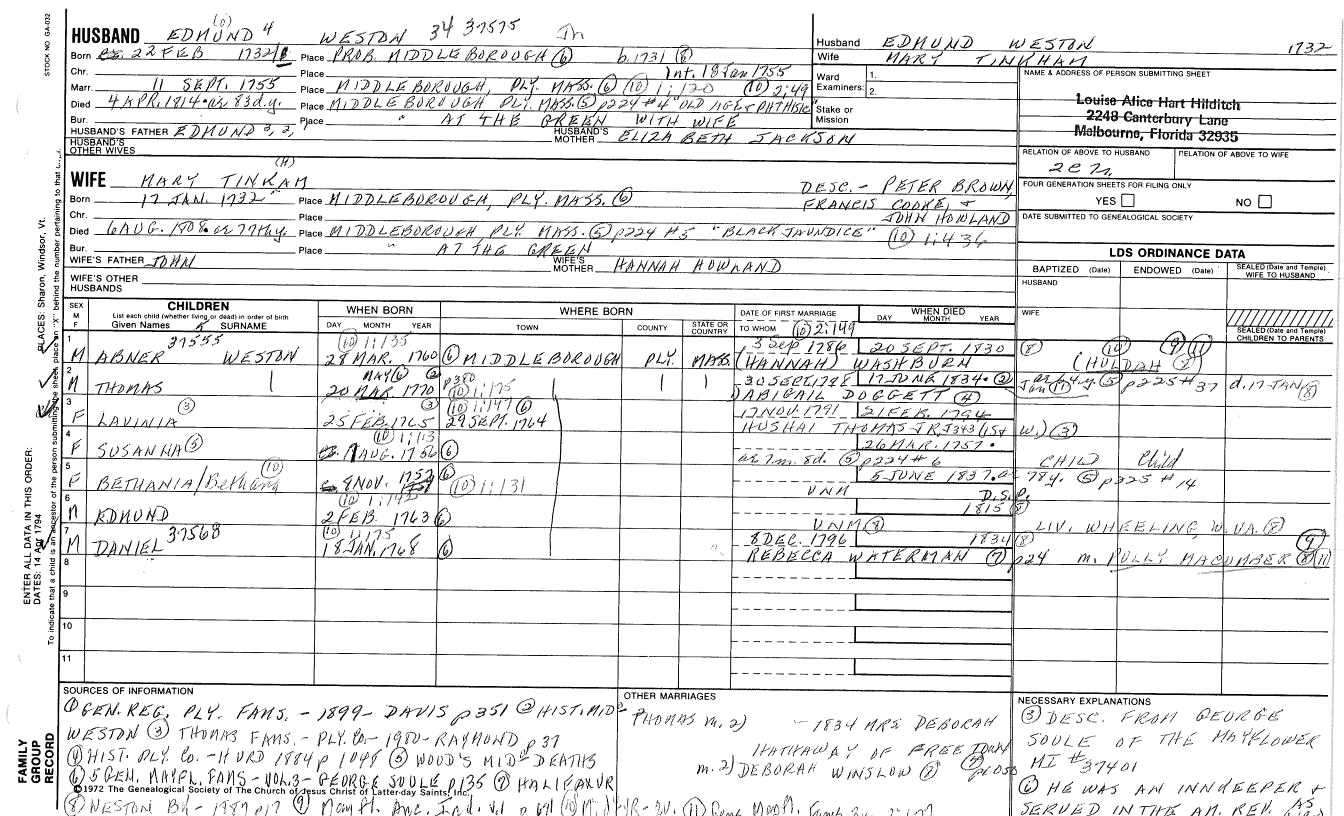 STOCK NO GA-032
HUSBAND EDMUND 4 WESTON 34 37575
Born 22 FEB 1732/ Place PROB. MIDDLEBOROUGH (6) b. 1731 (8)
Chr. Place Int. 18 Jan 1755
Marr. 11 SEPT. 1755 Place MIDDLEBOROUGH, PLY. MASS. (6) (10) 1:120 (10) 2:49
Died 4 APR. 1814 83 Place MIDDLEBOROUGH PLY. MASS. (5) p224 #4 "OLD AGE + PHTHISIC"
Bur. Place " AT THE GREEN WITH WIFE
HUSBAND'S FATHER EDMUND 3, 2, HUSBAND'S MOTHER ELIZABETH JACKSON
HUSBAND'S OTHER WIVES
(H)
WIFE MARY TINKAM
Born 17 JAN. 1732 Place MIDDLEBOROUGH, PLY. MASS. (6)
Chr. Place
Died 6 AUG. 1808 Place MIDDLEBOROUGH PLY. MASS. (5) p224 #5 "BLACK JAUNDICE" (10) 1:436
Bur. Place " AT THE GREEN
DESC. - PETER BROWN,
FRANCIS COOKE, +
JOHN HOWLAND
WIFE'S FATHER JOHN WIFE'S MOTHER HANNAH HOWLAND
WIFE'S OTHER HUSBANDS
Husband EDMUND WESTON 1732
Wife MARY TINKHAM
Ward 1.
Examiners: 2.
Stake or Mission
NAME & ADDRESS OF PERSON SUBMITTING SHEET
Louise Alice Hart Hilditch
2248 Canterbury Lane
Melbourne, Florida 32935
RELATION OF ABOVE TO HUSBAND RELATION OF ABOVE TO WIFE
FOUR GENERATION SHEETS FOR FILING ONLY
YES NO
DATE SUBMITTED TO GENEALOGICAL SOCIETY
LDS ORDINANCE DATA
BAPTIZED (Date) ENDOWED (Date) SEALED (Date and Temple) WIFE TO HUSBAND
HUSBAND
WIFE
SEALED (Date and Temple) CHILDREN TO PARENTS
SEX M F
CHILDREN
List each child (whether living or dead) in order of birth
Given Names SURNAME
WHEN BORN
DAY MONTH YEAR
WHERE BORN
TOWN COUNTY STATE OR COUNTRY
DATE OF FIRST MARRIAGE
TO WHOM (10) 2:149
WHEN DIED
DAY MONTH YEAR
1 37555 (10) 1:135 3 Sep 1786 20 SEPT. 1830 (8) (10) (9) (11)
M ABNER WESTON 28 MAR. 1760 (6) MIDDLEBOROUGH PLY. MASS (HANNAH) WASHBURN (HULDAH (2)
2 MAY (6) (2) p380 30 SEPT. 1798 17 JUNE 1834. (2) (5) p225 #37 d. 17 JAN (8)
M THOMAS 20 MAR. 1770 (10) 1:175 ABIGAIL DOGGETT (4)
3 (3) (3) (10) 1:147 (6) 17 NOV. 1791 21 FEB. 1794
F LAVINIA 25 FEB. 1765 29 SEPT. 1764 HUSHAI THOMAS JR. J343 (1st W.) (3)
4 (10) 1:113 26 MAR. 1757.
F SUSANNA (5) 7 AUG. 1756 (6) 7m. 8d. (5) p224 #6 CHILD Child
5 (10) 5 JUNE 1837. 78y. (5) p225 #14
F BETHANIA/Bethany 8 NOV. (6) (10) 1:131 UNM
6 (10) D.S.P. 1815 (8)
M EDMUND 2 FEB 1763 (6) UNM (8) LIV. WHEELING, W. VA. (8)
7 37568 (10) 1:175 8 DEC. 1796 1834 (8) (9)
M DANIEL 18 JAN. 1768 (6) REBECCA WATERMAN (7) p24 m. POLLY MACUMBER (8) (11)
8
9
10
11
ENTER ALL DATA IN THIS ORDER:
DATES: 14 Apr 1794
PLACES: Sharon, Windsor, Vt.
To indicate that a child is an ancestor of the person submitting the sheet, place an "X" behind the number pertaining to that
FAMILY GROUP RECORD
SOURCES OF INFORMATION
(1) GEN. REG. PLY. FAMS. - 1899 - DAVIS p351 (2) HIST. MID
WESTON (3) THOMAS FAMS. - PLY. Co. - 1980 - RAYMOND p 37
(4) HIST. PLY. Co. - HURD 1884 p 1098 (5) WOOD'S MID DEATHS
(6) 5 GEN. MAYFL. FAMS - VOL. 3 - GEORGE SOULE p135 (7) HALIFAX VR
©1972 The Genealogical Society of The Church of Jesus Christ of Latter-day Saints, Inc.
(8) WESTON BK - 1987 p17 (9)
OTHER MARRIAGES
THOMAS m. 2) - 1834 MRS DEBORAH
HATHAWAY OF FREETOWN
m. 2) DEBORAH WINSLOW (2)
NECESSARY EXPLANATIONS
(3) DESC. FROM GEORGE
SOULE OF THE MAYFLOWER
MI # 37401
(6) HE WAS AN INNKEEPER +
SERVED IN THE AM. REV. AS